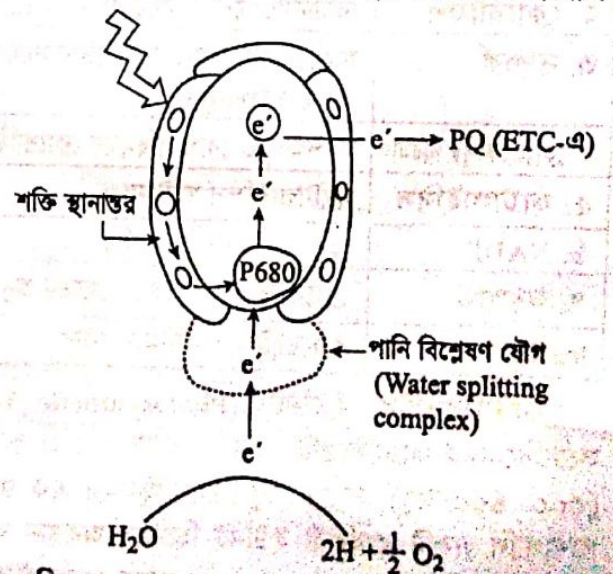 e′
e′ → PQ (ETC-এ)
e′
শক্তি স্থানান্তর
P680
e′
পানি বিশ্লেষণ যৌগ
(Water splitting
complex)
e′
H₂O
2H + ½ O₂